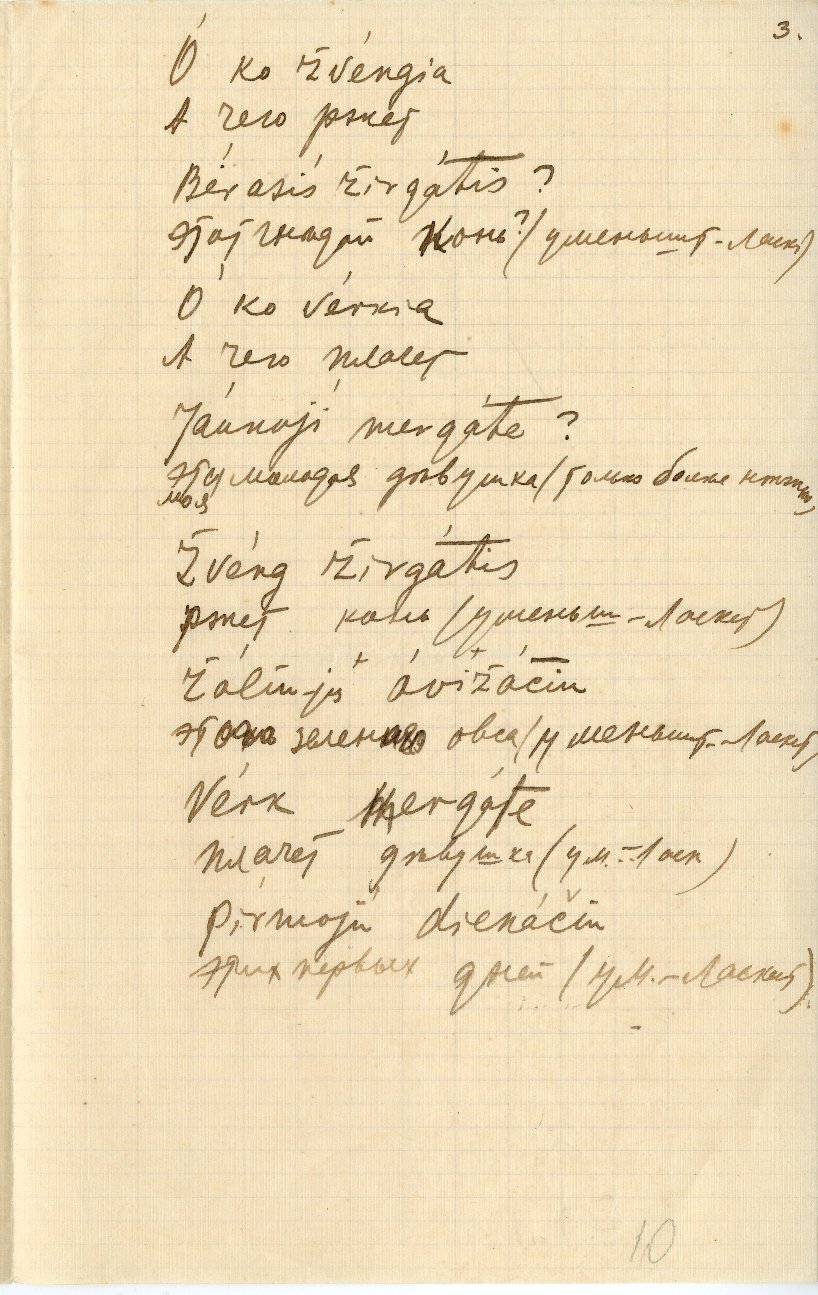 3.
Ó ko žvéngia
А чего ржет
Bérasis žirgátis?
Этот гнедой конь? (уменьшит-ласкт)
Ó ko vérkia
А чего плачет
Jáunoji mergáte?
эта молодая дѣвушка (только более
моя
Žvéng žirgátis
ржет конь (уменьш-ласкт)
žáliųjų ávižáčiu
этого зеленаго овса (уменьшит-ласкт)
Vérk mergáte
плачет дѣвушка (ум.-ласк)
Pírmojú dienáčiu
этих первых дней (ум.-ласкат).
10